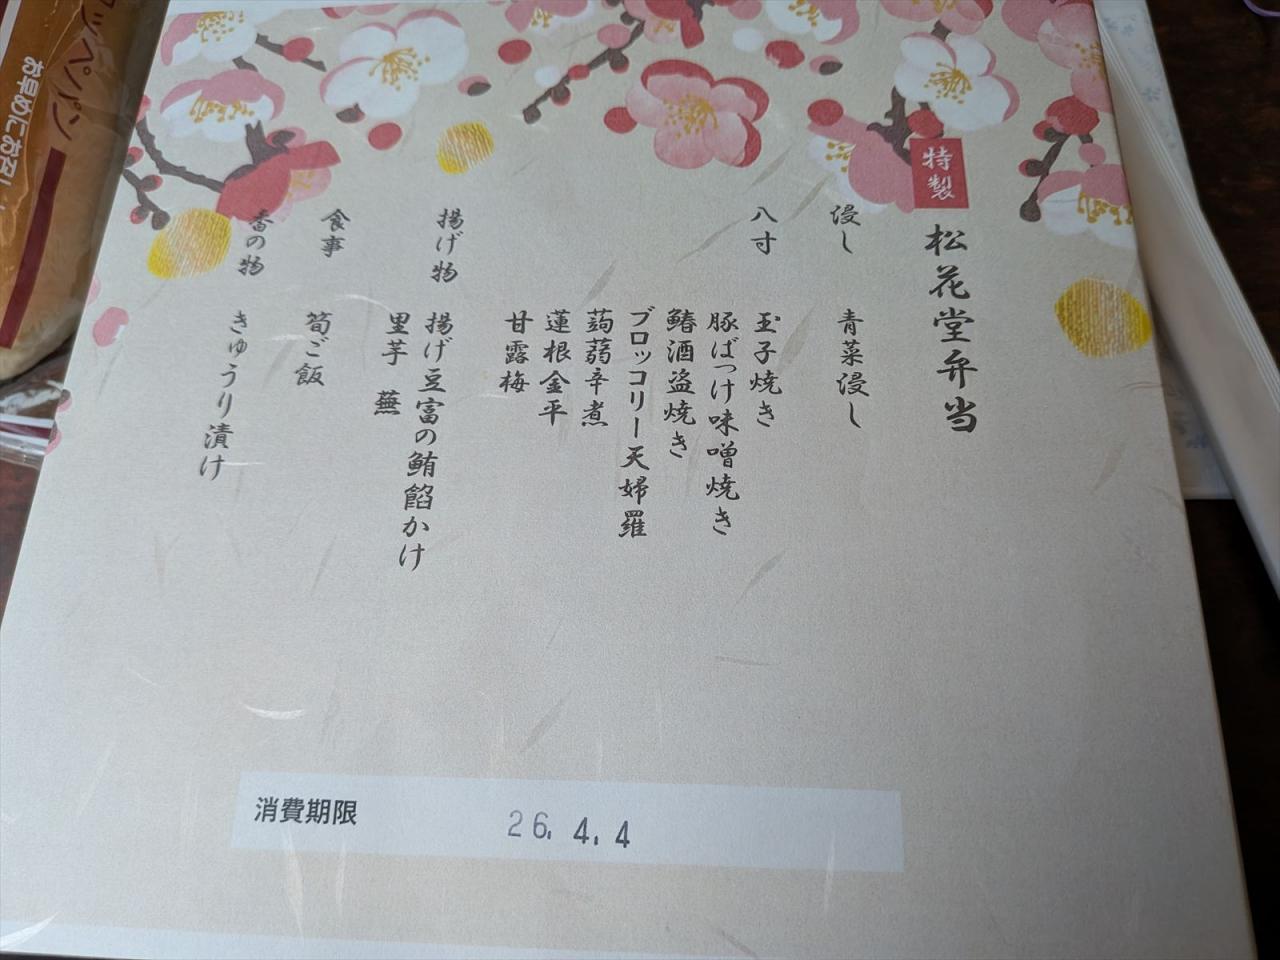 特製
松花堂弁当
浸し
青菜浸し
八寸
玉子焼き
豚ばっけ味噌焼き
鰆酒盗焼き
ブロッコリー天婦羅
蒟蒻辛煮
蓮根金平
甘露梅
揚げ物
揚げ豆富の鮪餡かけ
里芋 蕪
食事
筍ご飯
香の物
きゅうり漬け
消費期限 26.4.4
コッペパン
お早めにお召し